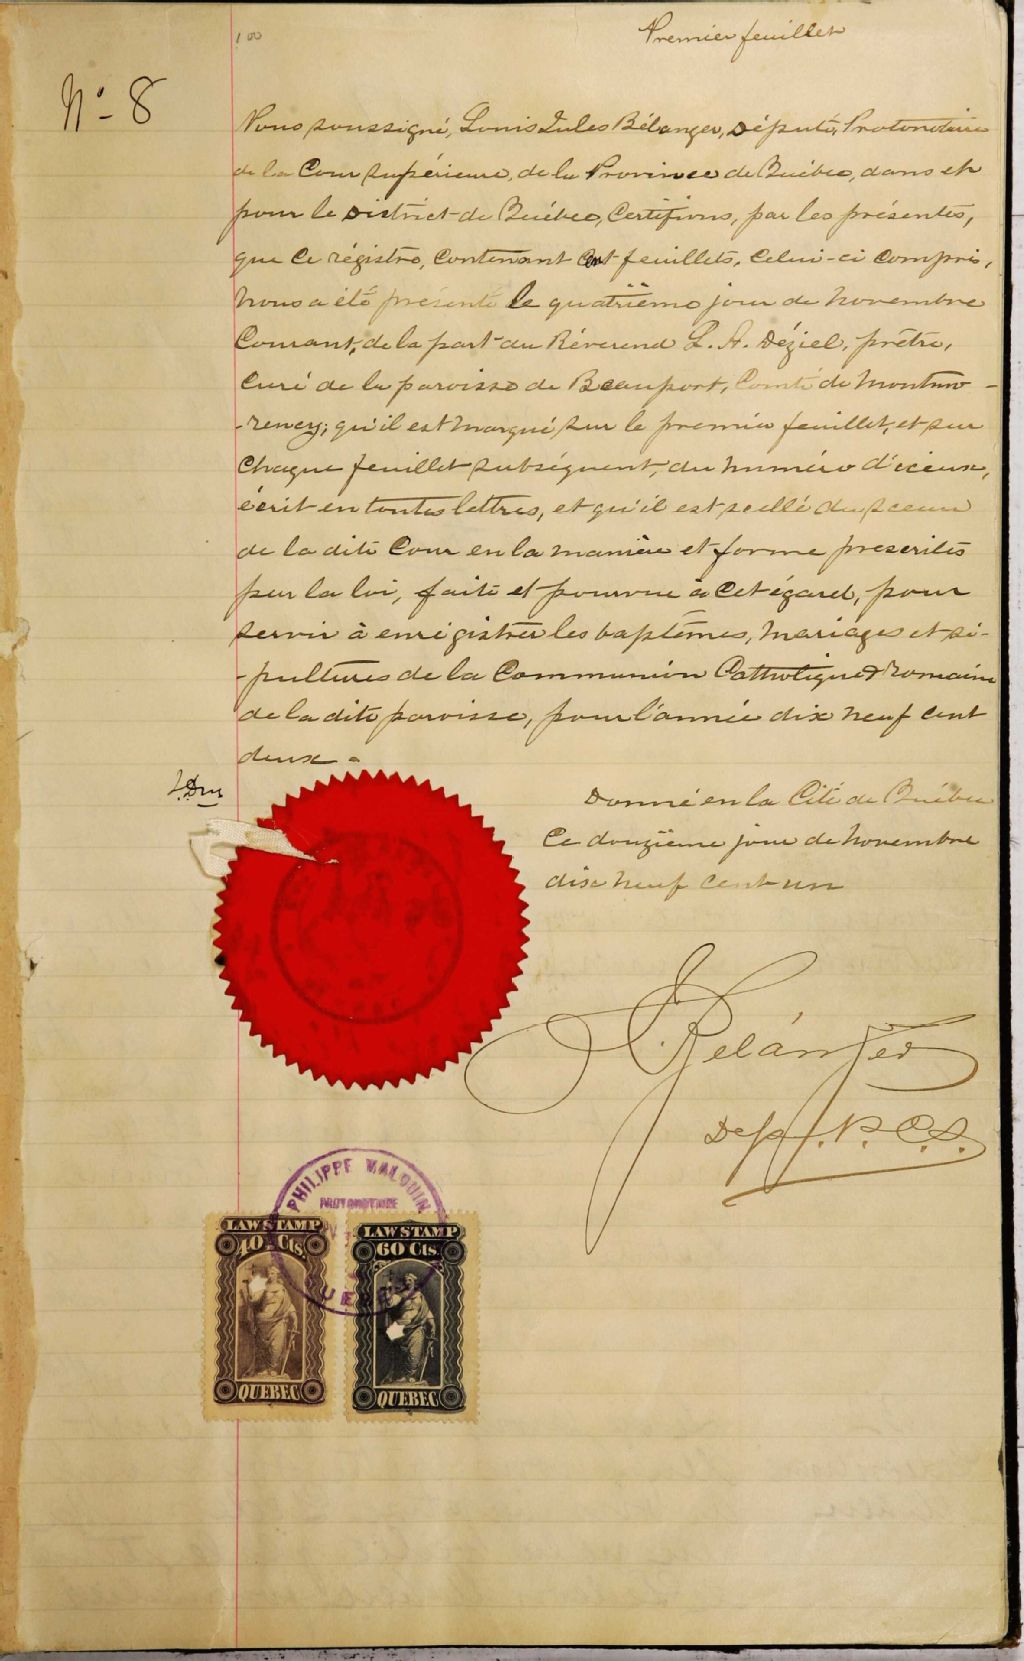 100
Premier feuillet
No 8
Nous soussigné, Louis Jules Bélanger, Député, Protonotaire
de la Cour Supérieure, de la Province de Québec, dans et
pour le District de Québec, Certifions, par les présentes,
que ce régistre, contenant cent feuillets, celui-ci compris,
nous a été présenté le quatrième jour de novembre
Courant, de la part du Révérend L. A. Déziel, prêtre,
curé de la paroisse de Beauport, Comté de Montmo-
-rency; qu'il est marqué sur le premier feuillet, et sur
chaque feuillet subséquent, du numéro d'iceux,
écrit en toutes lettres, et qu'il est scellé du sceau
de la dite Cour en la manière et forme prescrites
par la loi, faite et pourvue à cet égard, pour
servir à enrégistrer les baptêmes, mariages et sé-
-pultures de la Communion Catholique & romaine
de la dite paroisse, pour l'année dix neuf cent
deux.
Donné en la Cité de Québec
Ce douzième jour de novembre
dix neuf cent un
J. Bélanger
Dep. P. C. S.
PHILIPPE MALOUIN
PROTONOTAIRE
QUEBEC
LAW STAMP
40 Cts.
QUEBEC
LAW STAMP
60 Cts.
QUEBEC